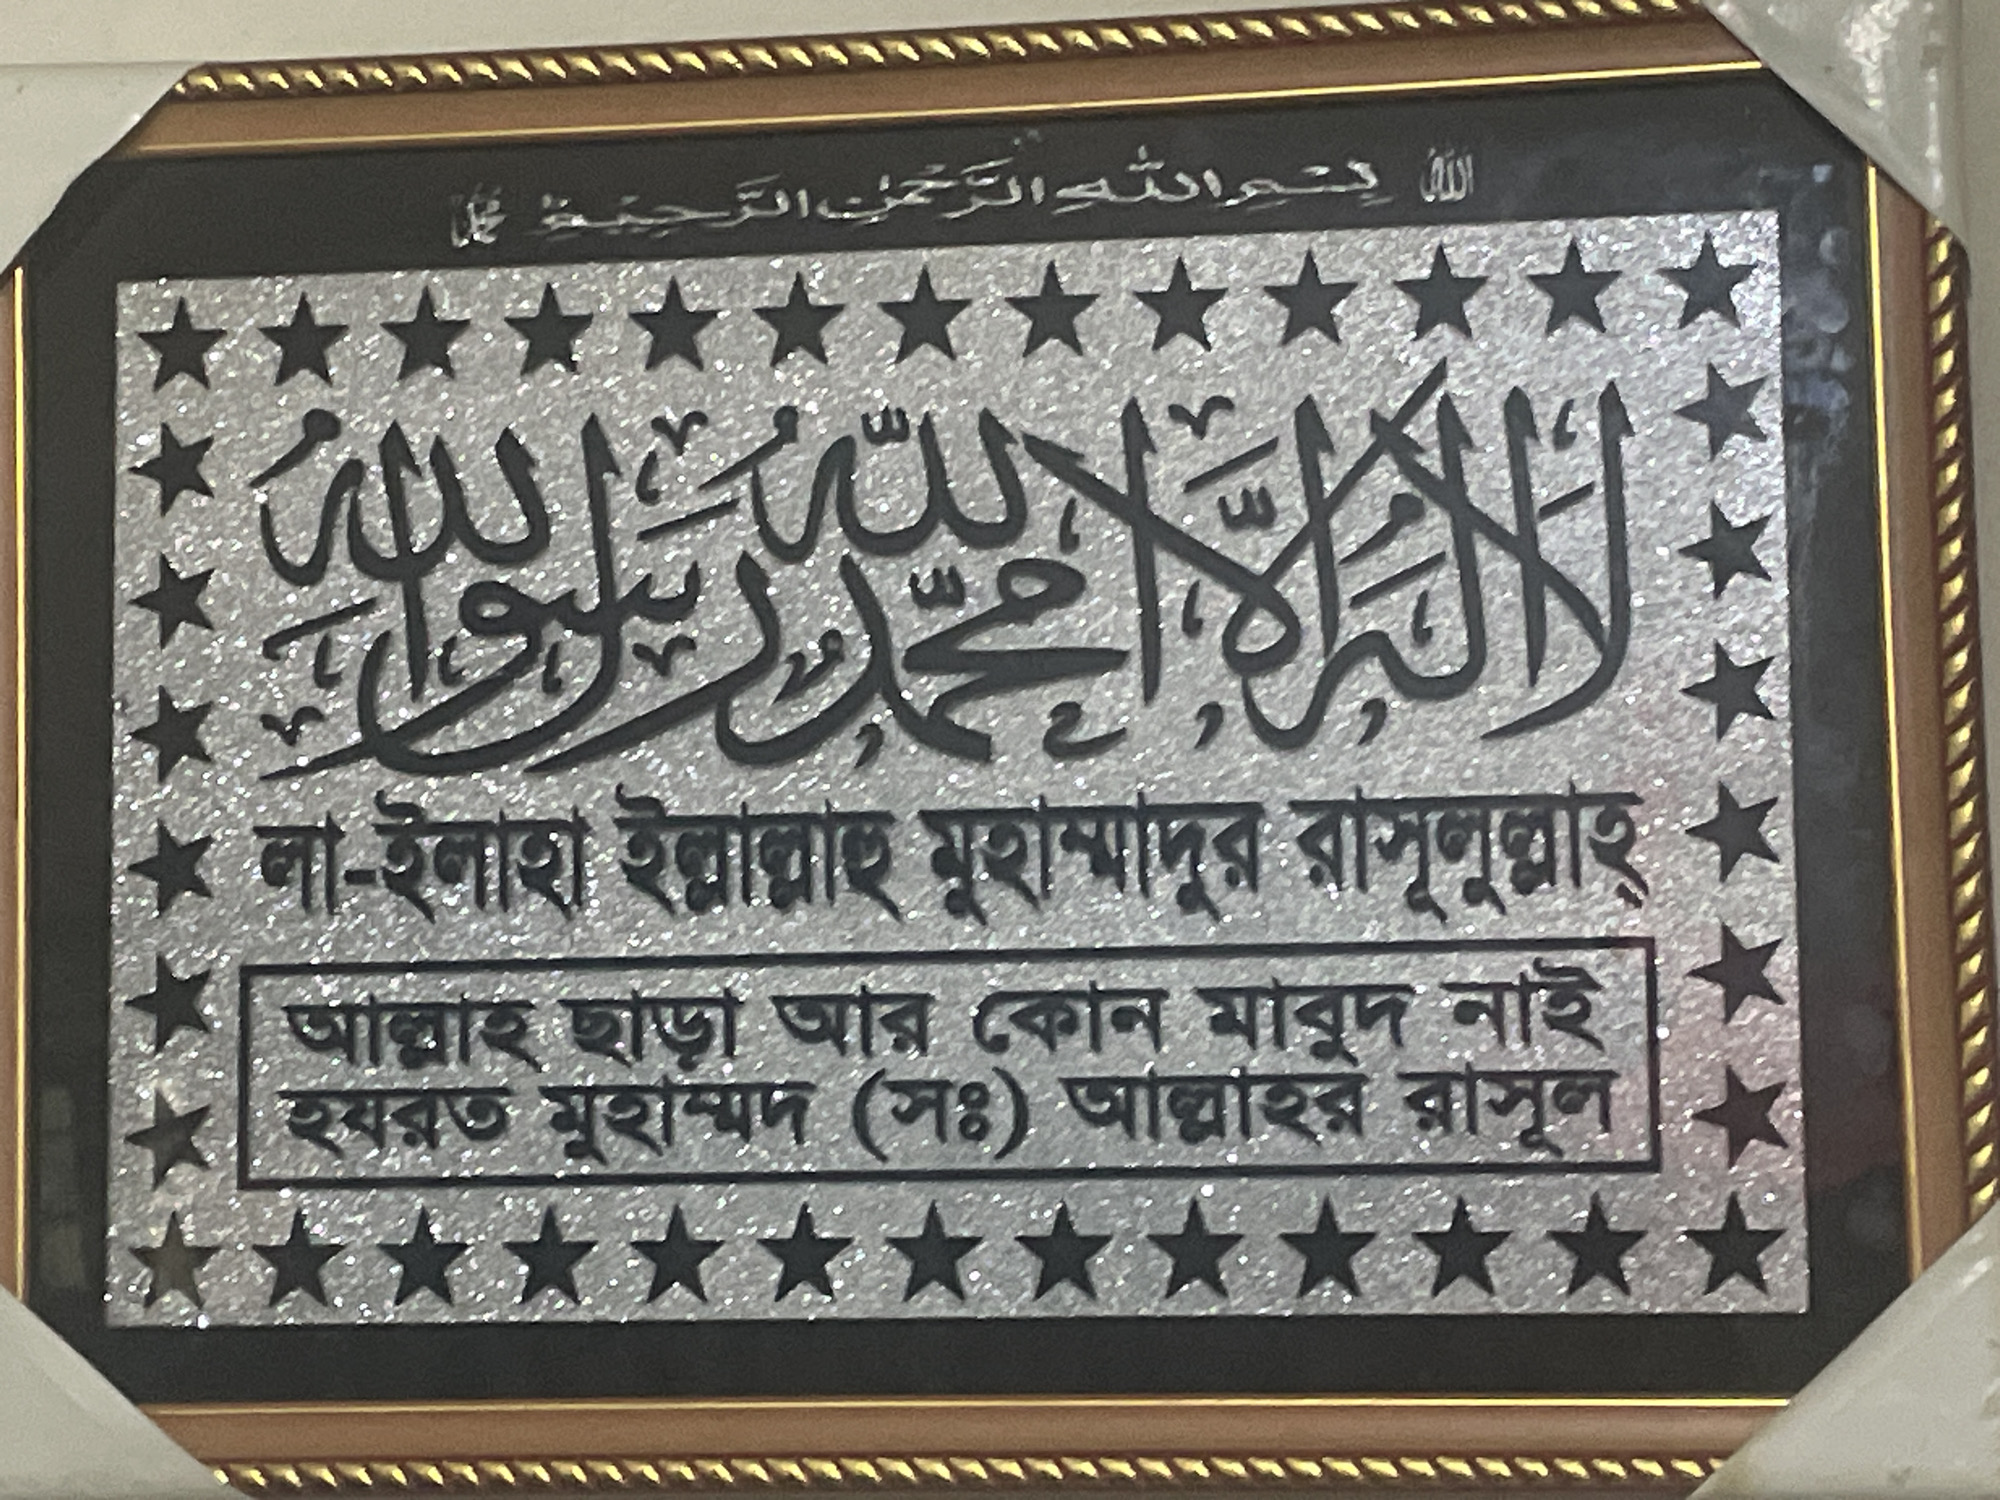 الله بِسْمِ اللهِ الرَّحْمٰنِ الرَّحِيْمِ محمد
لَا اِلٰهَ اِلَّا اللّٰهُ مُحَمَّدٌ رَّسُولُ اللهِ
লা-ইলাহা ইল্লাল্লাহু মুহাম্মাদুর রাসূলুল্লাহ্
আল্লাহ ছাড়া আর কোন মাবুদ নাই
হযরত মুহাম্মদ (সঃ) আল্লাহর রাসূল